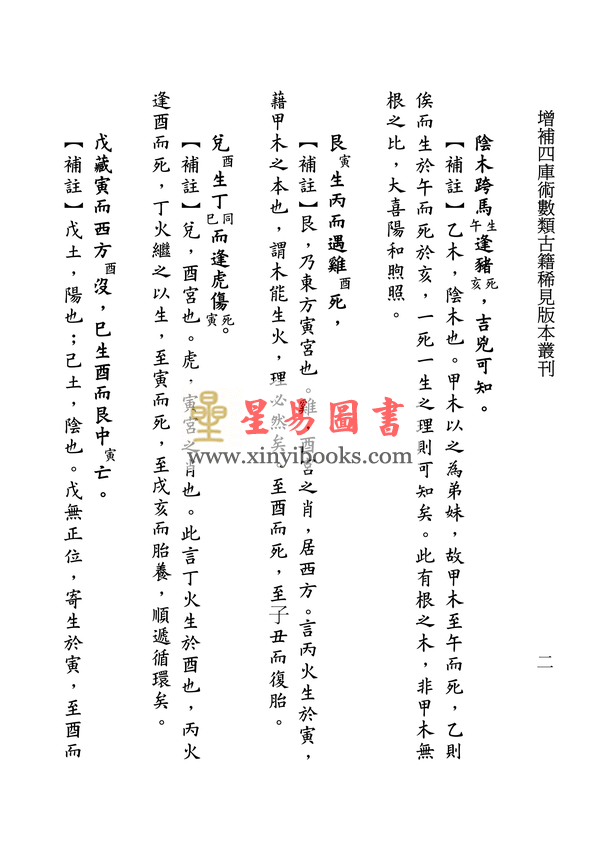 增補四庫術數類古籍稀見版本叢刊
二
陰木跨馬生午逢豬死亥，吉兇可知。
【補註】乙木，陰木也。甲木以之為弟妹，故甲木至午而死，乙則
俟而生於午而死於亥，一死一生之理則可知矣。此有根之木，非甲木無
根之比，大喜陽和煦照。
艮寅生丙而遇雞酉死，
【補註】艮，乃東方寅宮也。雞，酉宮之肖，居西方。言丙火生於寅，
藉甲木之本也，謂木能生火，理必然矣。至酉而死，至子丑而復胎。
兌酉生丁同巳而逢虎傷死寅。
【補註】兌，酉宮也。虎，寅宮之肖也。此言丁火生於酉也，丙火
逢酉而死，丁火繼之以生，至寅而死，至戌亥而胎養，順遞循環矣。
戊藏寅而西方酉沒，巳生酉而艮中寅亡。
【補註】戊土，陽也；己土，陰也。戊無正位，寄生於寅，至酉而
星易圖書
www.xinyibooks.com